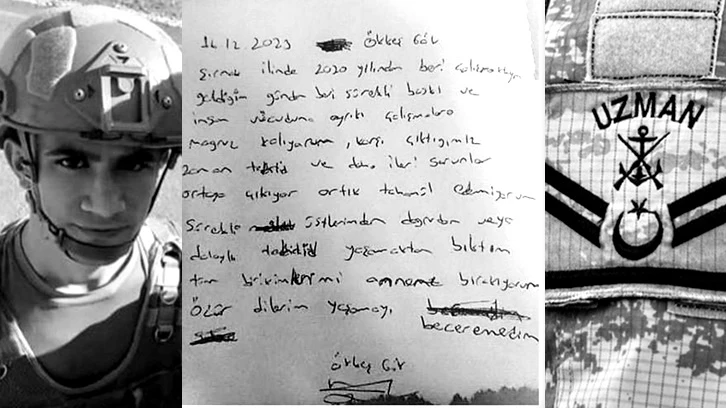 14.12.2023 Ökkeş Gök
Şırnak ilinde 2020 yılından beri çalışmaktayım
geldiğim günden beri sürekli baskı ve
insan vücuduna aykırı çalışmalara
maruz kalıyorum, karşı çıktığımız
zaman tehdid ve daha ileri sorunlar
ortaya çıkıyor artık tahamül edemiyorum
Sürekli üstlerimden doğrudan veya
dolaylı tehdid yaşamaktan bıktım
tüm birikimlerimi anneme bırakıyorum
Özür dilerim yaşamayı
beceremedim
Ökkeş Gök
UZMAN